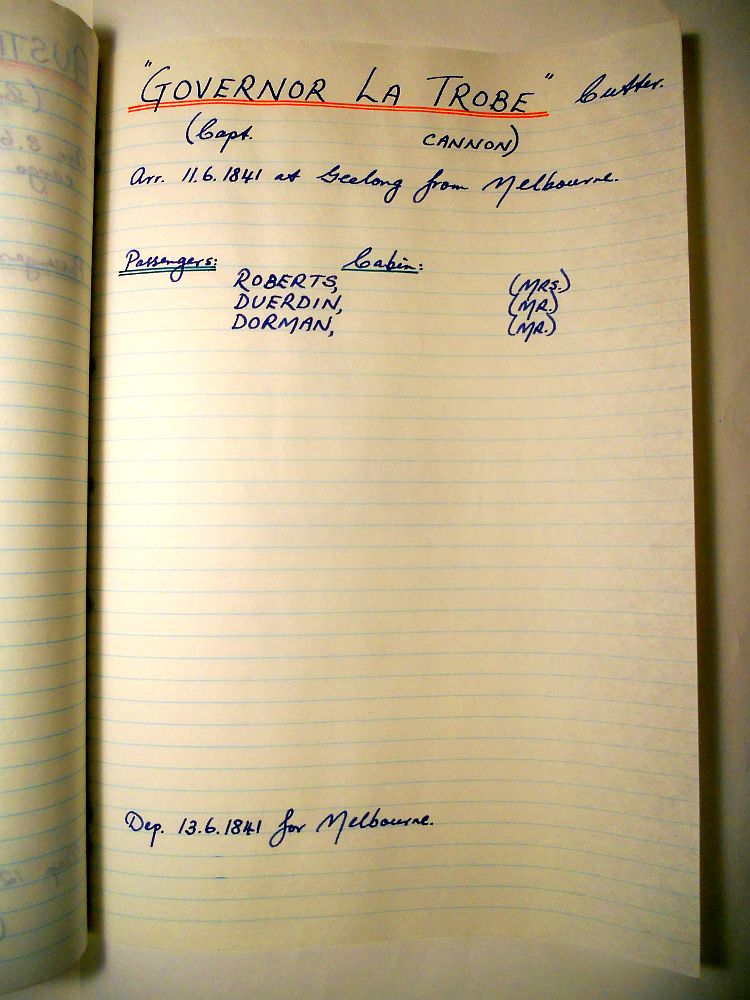 "GOVERNOR LA TROBE" Cutter.
(Capt. CANNON)
Arr. 11.6.1841 at Geelong from Melbourne.
Passengers: Cabin:
ROBERTS, (MRS.)
DUERDIN, (MR.)
DORMAN, (MR.)
Dep. 13.6.1841 for Melbourne.